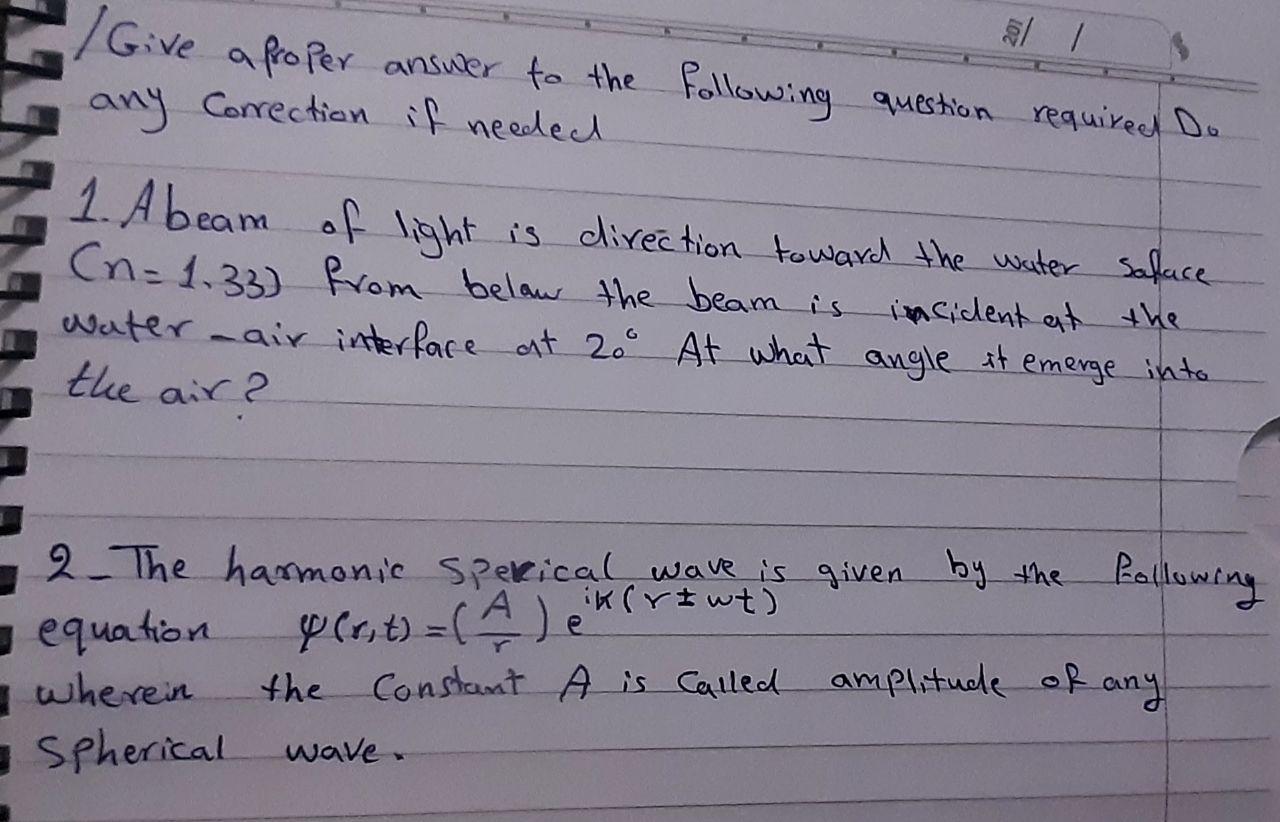 /Give a proper answer to the following question required Do
any Correction if needed
1. A beam of light is direction toward the water saface
(n=1.33) from below the beam is incident at the
water-air interface at 20° At what angle it emerge into
the air?
2_ The harmonic sperical wave is given by the following
equation ψ(r,t)=(A/r)e^ik(r±wt)
wherein the Constant A is Called amplitude of any
spherical wave.